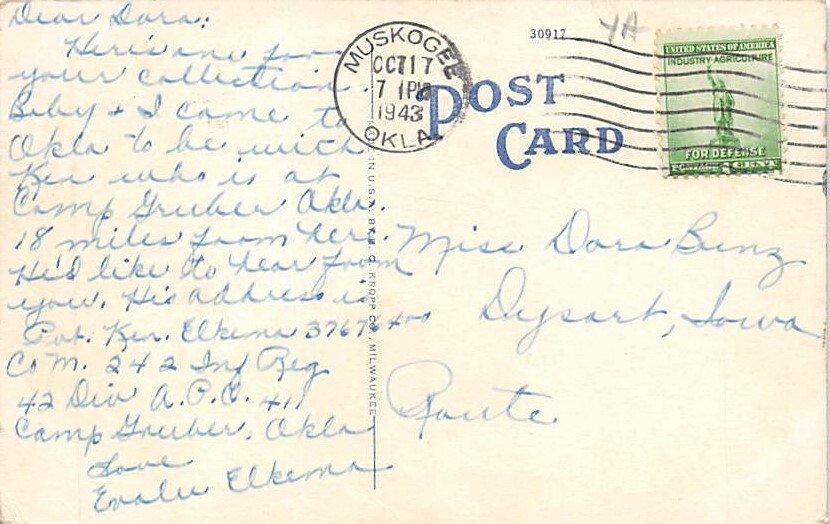 Dear Dora:
Here's one for
your collection.
Baby + I came to
Okla to be with
Ken who is at
Camp Gruber Okla.
18 miles from here.
He'd like to hear from
you. His address is
Pvt. Ken. Elkema 37676400
Co M. 242 Inf Reg
42 Div A.P.O. 411
Camp Gruber, Okla
Love
Evalu Elkema
MADE IN U.S.A. BY E. C. KROPP CO., MILWAUKEE
30917
YA
MUSKOGEE
OCT 17
7 1PM
1943
OKLA.
POST
CARD
UNITED STATES OF AMERICA
INDUSTRY AGRICULTURE
FOR DEFENSE
POSTAGE 1 CENT
Miss Dora Bunz
Dysart, Iowa
Route